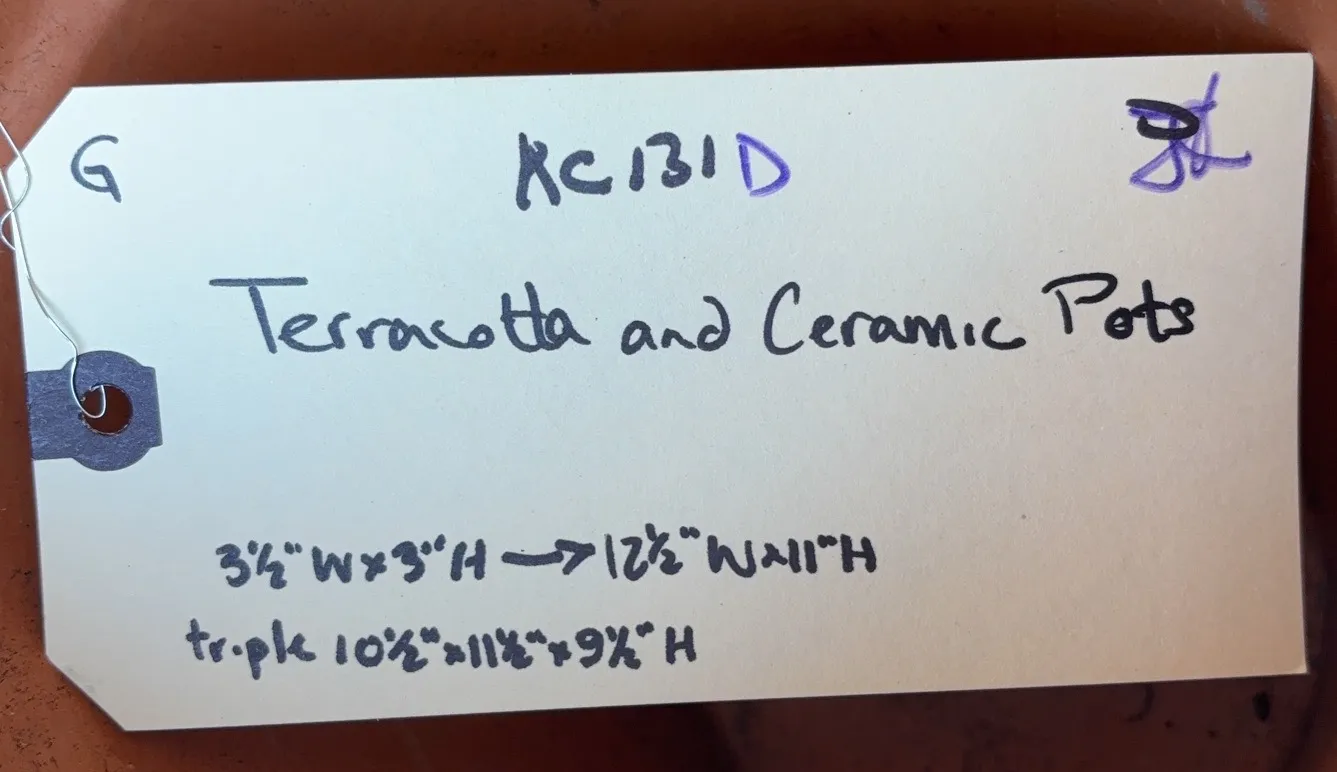 G KC131D
Terracotta and Ceramic Pots
3½" W x 3" H → 12½" W x 11" H
triple 10½" x 11½" x 9½" H